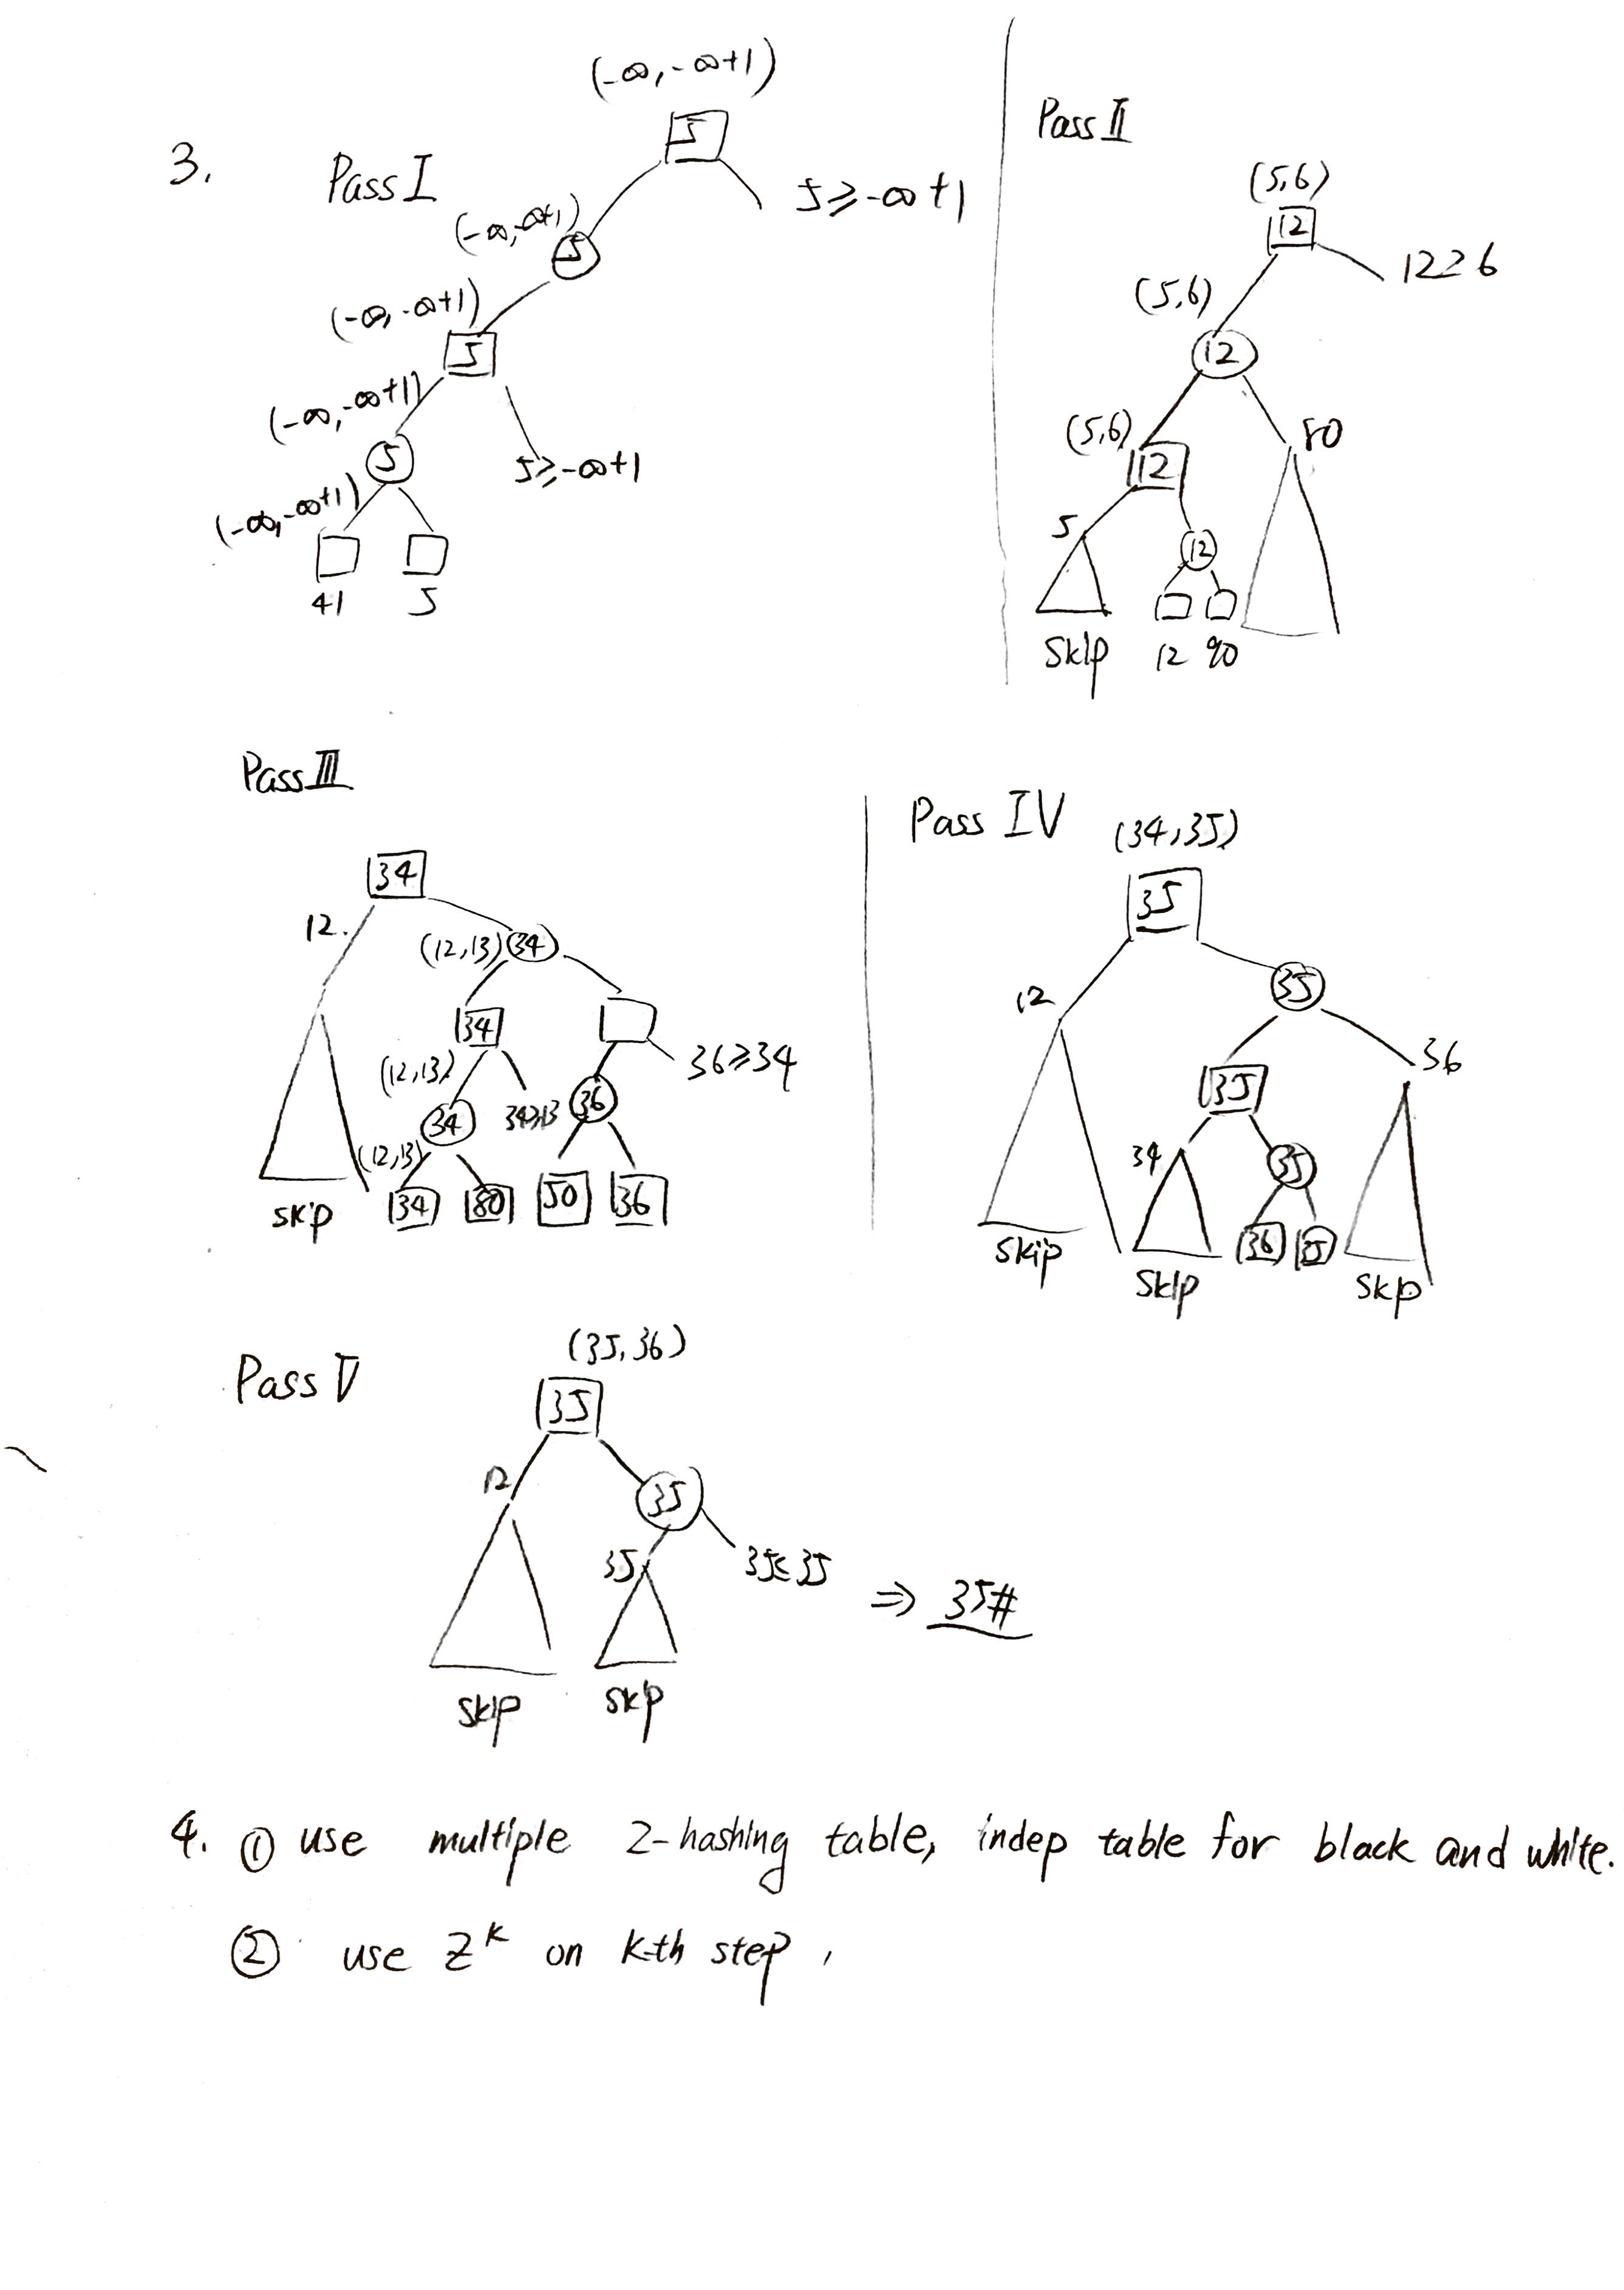 3.
Pass I
(-∞, -∞+1)
5
5 ≥ -∞+1
(-∞, -∞+1)
5
(-∞, -∞+1)
5
(-∞, -∞+1)
5
5 ≥ -∞+1
(-∞, -∞+1)
41 5
Pass II
(5,6)
12
12 ≥ 6
(5,6)
12
(5,6)
12
80
5
12
skip 12 90
Pass III
34
12.
(12,13) 34
34
36 ≥ 34
(12,13)
34
34 ≥ 13
36
(12,13)
34 80 50 36
skip
Pass IV
(34,35)
35
12
35
35
36
34
35
36 35
skip
skip
skip
Pass V
(35,36)
35
12
35
35
35 ≤ 35
⇒ 35#
skip skip
4. ① use multiple Z-hashing table, indep table for black and white.
② use Z^k on k-th step,